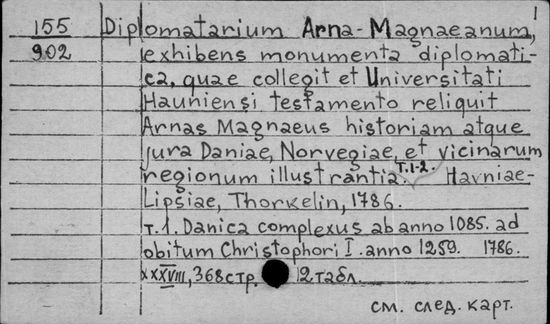 1
155 Diplomatarium Arna-Magnaeanum,
902 exhibens monumenta diplomati-
ca, quae collegit et Universitati
Hauniensi testamento reliquit
Arnas Magnaeus historiam atque
jura Daniae, Norvegiae, et vicinarum
regionum illustrantia. т.1-2. Havniae-
Lipsiae, Thorkelin, 1786.
т.1. Danica complexus ab anno 1085. ad
obitum Christophori I. anno 1259. 1786.
XXXVIII, 368 стр. 12 табл.
см. след. карт.